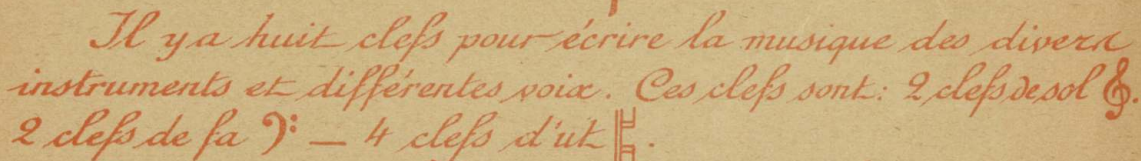 Il y a huit clefs pour écrire la musique des divers
instruments et différentes voix. Ces clefs sont: 2 clefs de sol 𝄞.
2 clefs de fa 𝄢 — 4 clefs d'ut 𝄡.